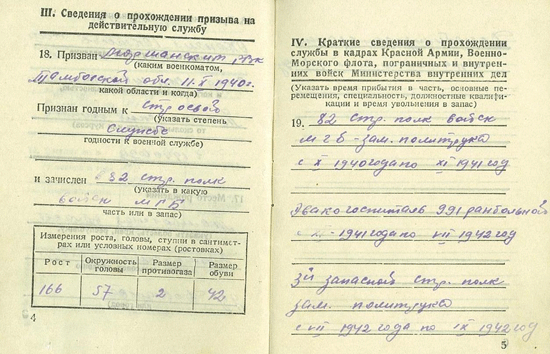 III. Сведения о прохождении призыва на
действительную службу
18. Призван РВК
(каким военкоматом,
Тамбовской обл. 11-X 1940 г.
какой области и когда)
Признан годным к строевой
(указать степень
службе
годности к военной службе)
и зачислен в 82 стр. полк
(указать в какую
войск МГБ
часть или в запас)
Измерения роста, головы, ступни в сантимет-
рах или условных номерах (ростовках)
Рост Окружность головы Размер противогаза Размер обуви
166 57 2 42
4
IV. Краткие сведения о прохождении
службы в кадрах Красной Армии, Военно-
Морского флота, пограничных и внутрен-
них войск Министерства внутренних дел
(Указать время прибытия в часть, основные пе-
ремещения, специальность, должностные квалифи-
кации и время увольнения в запас)
19. 82 стр. полк войск
МГБ - зам. политрука
с X 1940 года по XI 1941 год
Эвакогоспиталь 991 ранбольной
1941 года по VII 1942 год
запасной стр. полк
зам. политрука
с VII 1942 года по IX 1942 год
5